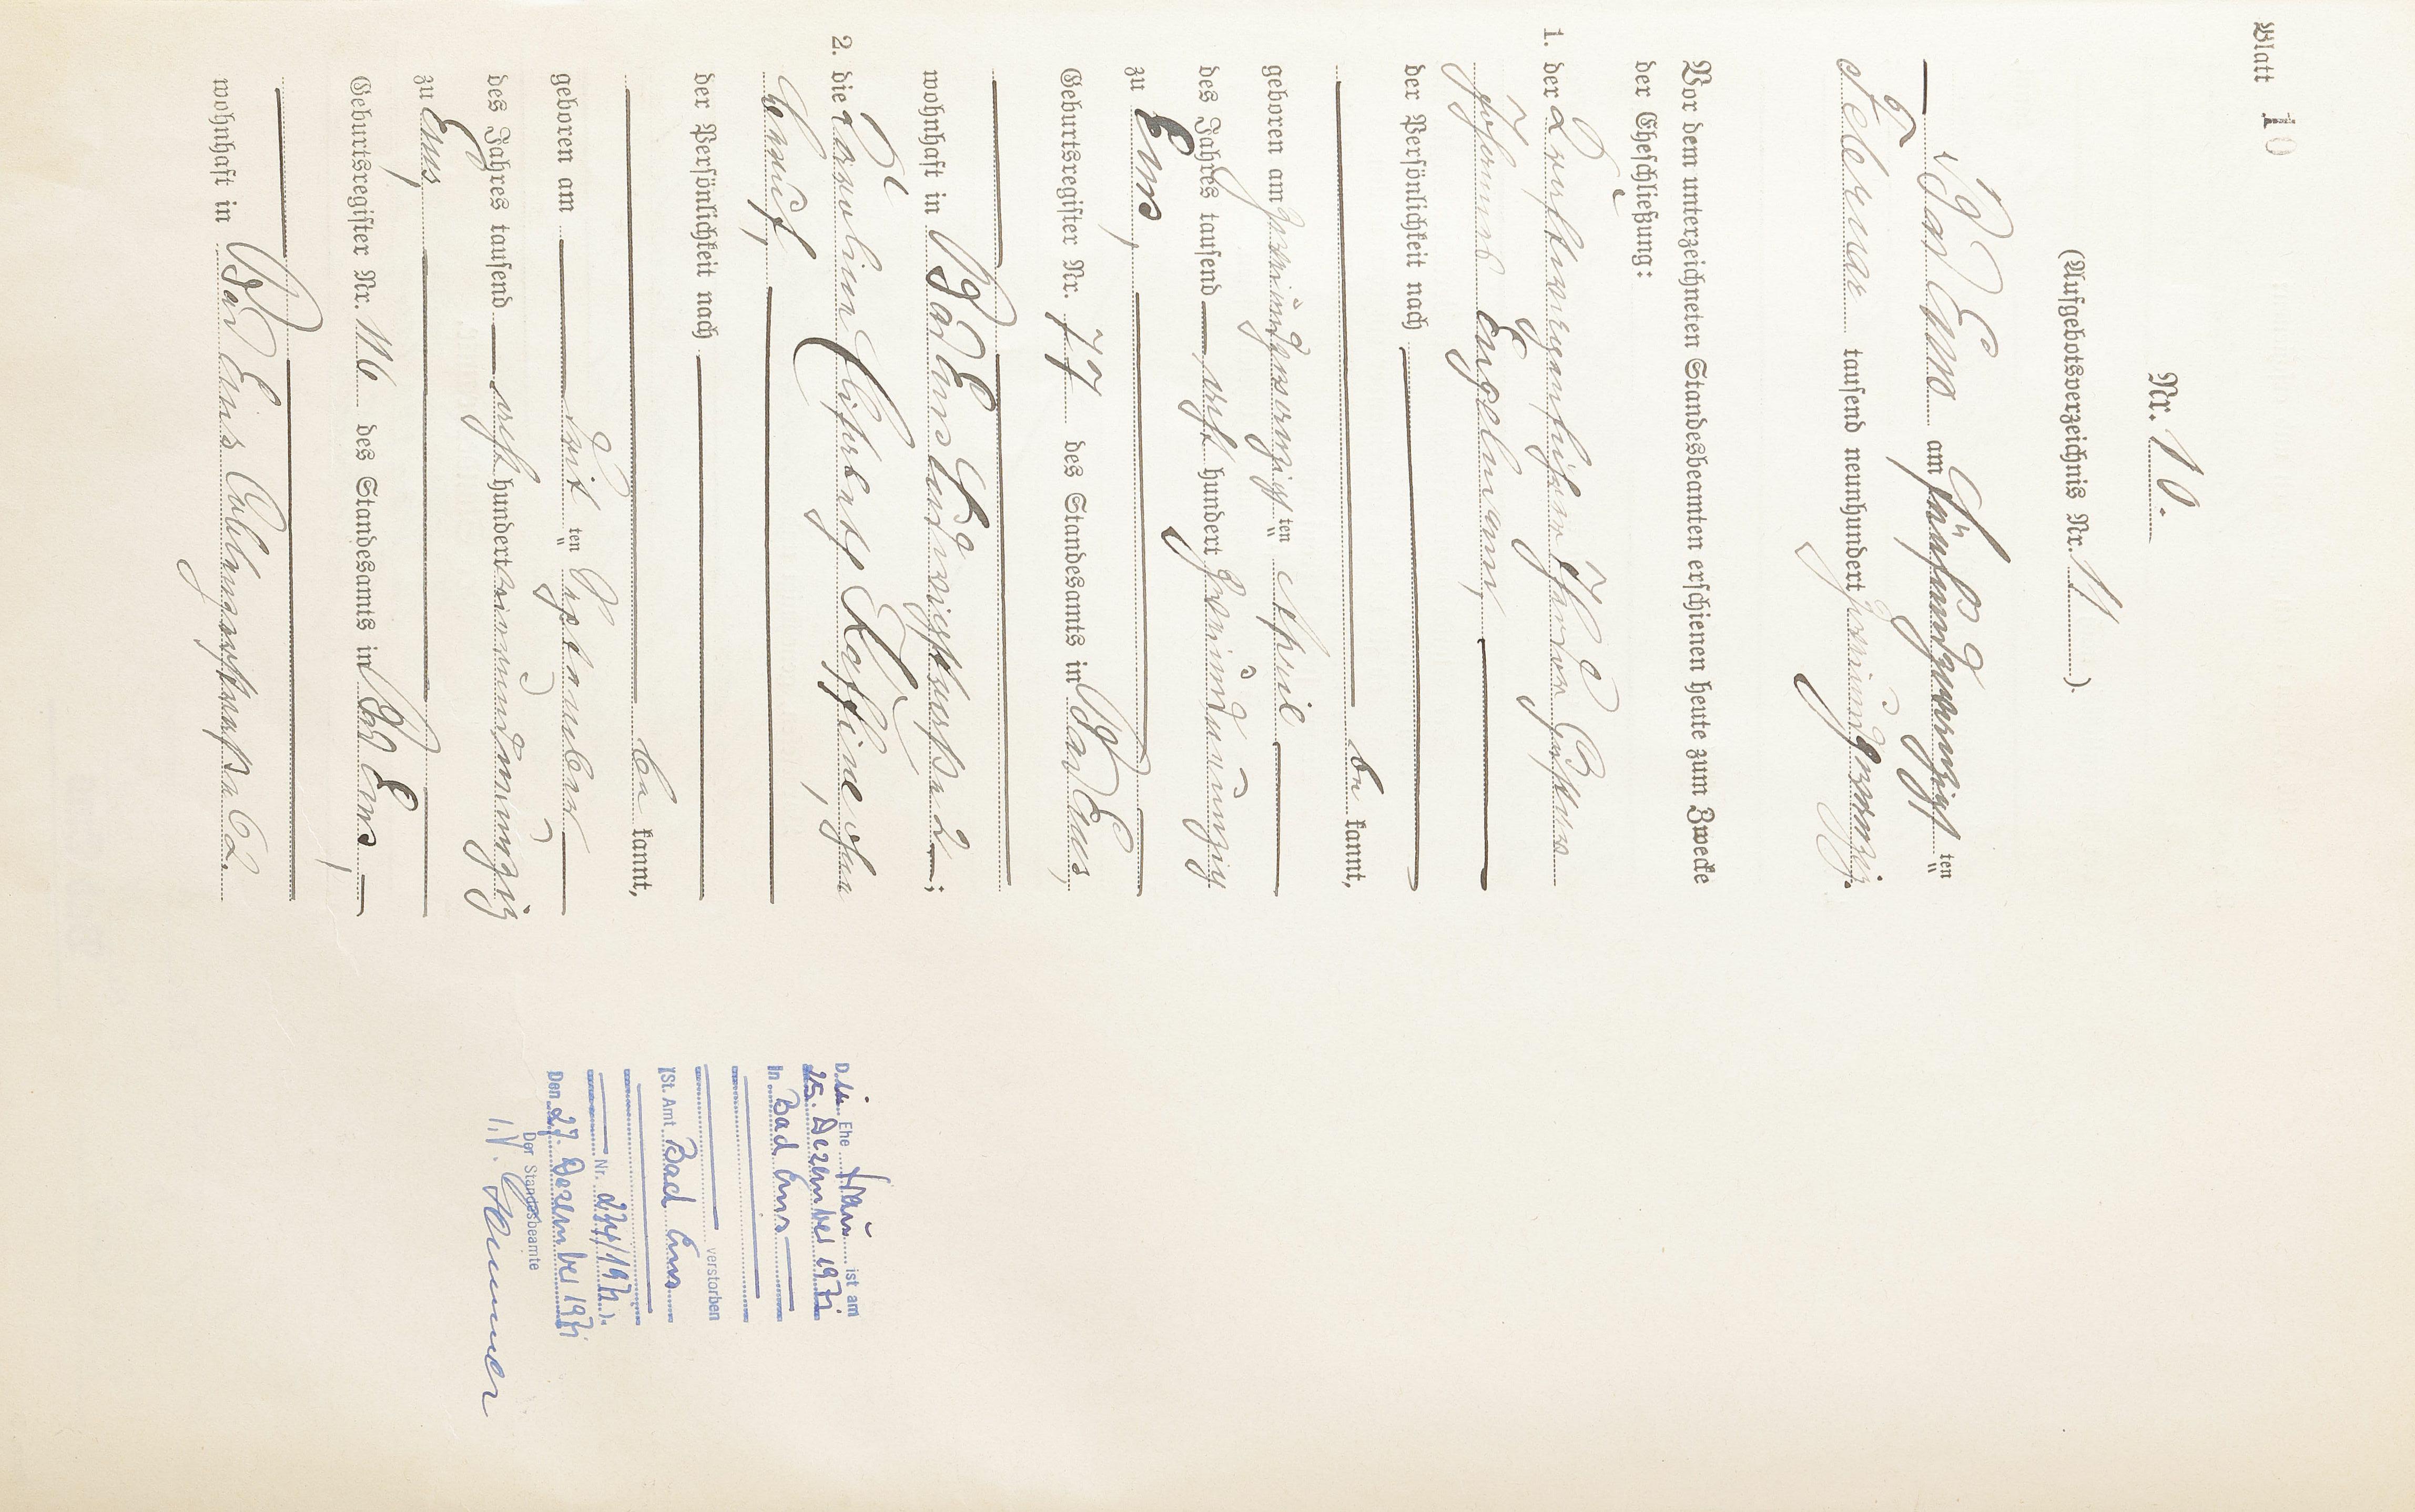 Blatt 10
Nr. 10.
(Aufgebotsverzeichnis Nr. 11).
Bad Ems am fünfundzwanzigsten
Februar tausend neunhundert zweiundzwanzig.
Vor dem unterzeichneten Standesbeamten erschienen heute zum Zwecke
der Eheschließung:
1. der Kraftwagenführer Theodor
Johann Engelmann,
der Persönlichkeit nach
be kannt,
geboren am zweiundzwanzigsten April
des Jahres tausend acht hundert zweiundneunzig
zu Ems,
Geburtsregister Nr. 77 des Standesamts in Bad Ems,
wohnhaft in Bad Ems
2. die Karoline Elisabeth Kathine, ohne
Beruf,
der Persönlichkeit nach
be kannt,
geboren am ten September
des Jahres tausend acht hundert vierundneunzig
zu Ems,
Geburtsregister Nr. 116 des Standesamts in Bad Ems,
wohnhaft in Bad Ems 62.
Die Ehefrau ist am
25. Dezember 1971
in Bad Ems
verstorben
(St. Amt Bad Ems
Nr. 274/1971).
Den 27. Dezember 1971
Der Standesbeamte
I.V.